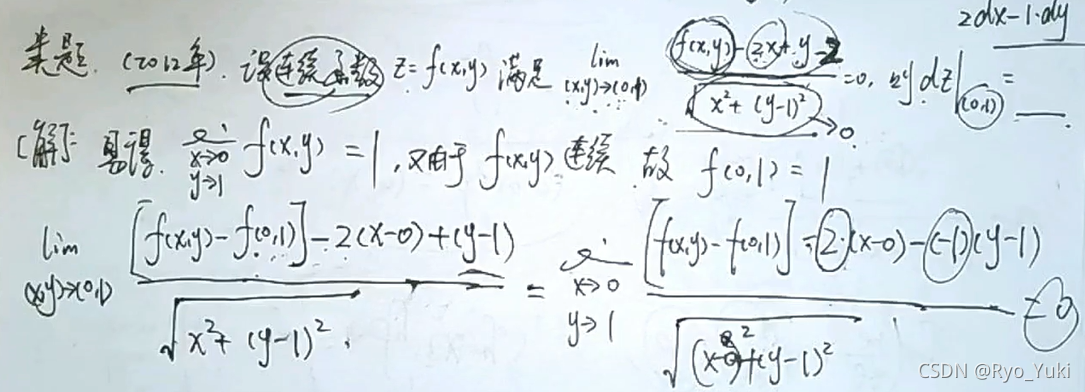 2dx-1·dy
类题. (2012年). 设连续函数 z=f(x,y) 满足 lim (x,y)→(0,1) f(x,y)-2x+y-2 / √(x²+(y-1)²) =0, 则 dz|(0,1) = ___
→0
[解]: 易得. lim x→0 y→1 f(x,y) = 1, 又由于 f(x,y) 连续 故 f(0,1) = 1
lim (x,y)→(0,1) [f(x,y)-f(0,1)]-2(x-0)+(y-1) / √(x²+(y-1)²) = lim x→0 y→1 [f(x,y)-f(0,1)]-2·(x-0)-(-1)(y-1) / √((x-0)²+(y-1)²) =0
CSDN @Ryo_Yuki